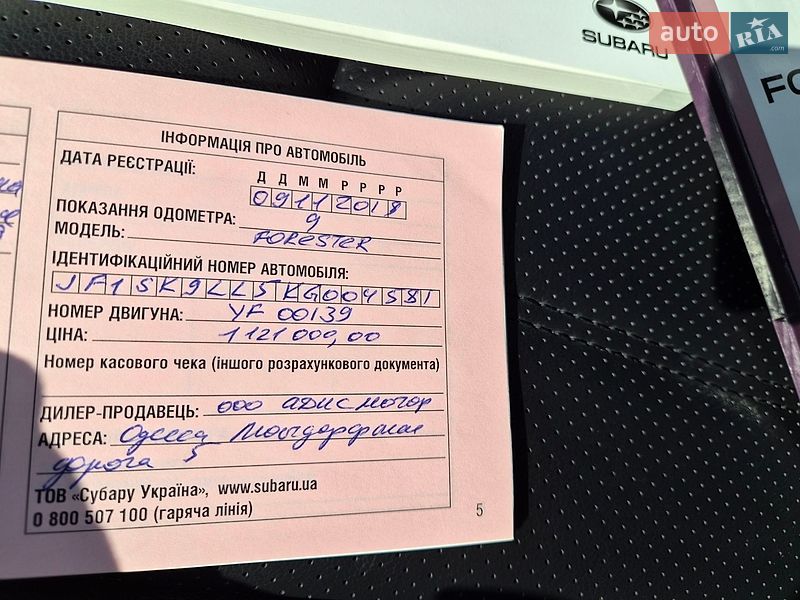 SUBARU
auto RIA .com
FO
ІНФОРМАЦІЯ ПРО АВТОМОБІЛЬ
ДАТА РЕЄСТРАЦІЇ:
Д Д М М Р Р Р Р
09112018
ПОКАЗАННЯ ОДОМЕТРА: 9
МОДЕЛЬ: FORESTER
ІДЕНТИФІКАЦІЙНИЙ НОМЕР АВТОМОБІЛЯ:
JF1SK9LL5KG004581
НОМЕР ДВИГУНА: YF 00139
ЦІНА: 1121009,00
Номер касового чека (іншого розрахункового документа)
ДИЛЕР-ПРОДАВЕЦЬ: ООО АДИС МОТОР
АДРЕСА: Одесса
дорога 5
ТОВ «Субару Україна», www.subaru.ua
0 800 507 100 (гаряча лінія)
5